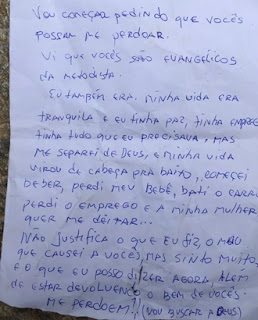 VOU COMEÇAR PEDINDO QUE VOCÊS
POSSAM ME PERDOAR.
VI QUE VOCÊS SÃO EVANGÉLICOS
DA METODISTA.
EU TAMBÉM ERA. MINHA VIDA ERA
TRANQUILA E EU TINHA PAZ, TINHA EMPREGO
TINHA TUDO QUE EU PRECISAVA, MAS
ME SEPAREI DE DEUS, E MINHA VIDA
VIROU DE CABEÇA PRA BAIXO, COMECEI
BEBER, PERDI MEU BEBÊ, BATI O CARRO
PERDI O EMPREGO E A MINHA MULHER
QUER ME DEIXAR...
NÃO JUSTIFICA O QUE EU FIZ, O MAU
QUE CAUSEI A VOCÊS, MAS SINTO MUITO
E O QUE EU POSSO DIZER AGORA, ALÉM
DE ESTAR DEVOLVENDO O BEM DE VOCÊS.
ME PERDOEM! (VOU BUSCAR A DEUS)